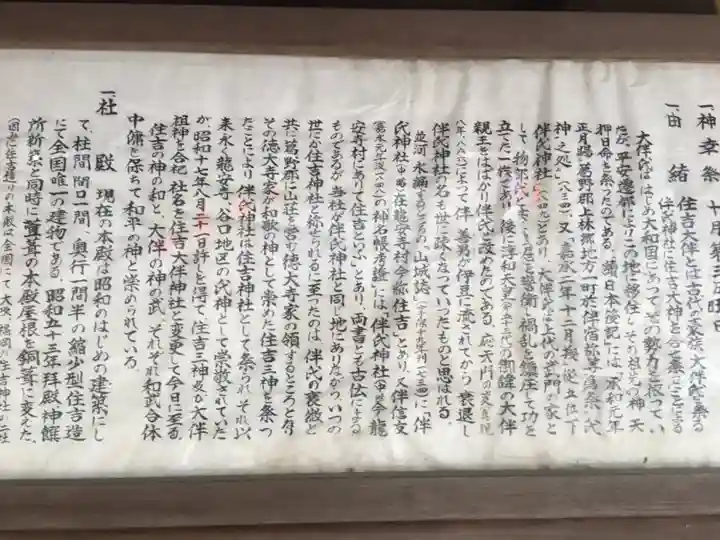 一神幸祭 十月第三日曜日
一由緒 住吉大伴とは古代の豪族、大伴氏を祭る
伴氏神社に住吉大神を合せ祭ることによる
大伴氏ははじめ大和国にあってその勢力を振ってい
たが、平安遷都によりこの地に移住しその祖先の神 天
押日命を祭ったのである。「續日本後記」には「承和元年
正月賜葛野郡上林郷地方一町於伴宿祢等為祭氏
神之処」(八三四)、又「嘉承二年十二月援從五位下
伴氏神社」(八四九)とあり、大伴氏は上代の武門の家と
して物部氏と共に皇居を警衛し禍乱を鎮圧して功を
立てた一族であり、後に淳和天皇(五十三代)の御諱の大伴
親王をはばかり伴氏と改めたのである。「應天門の変」(貞観
八年、八六六)によって伴 善男が伊豆に流されてから 衰退し
伴氏神社の名も世に疎くなっていったものと思はれる。
並河永編するところの「山城誌」(享保十九年刊一七三四)に「伴
氏神社(中略)在龍安寺村今称住吉」とあり、又伴信友
の神名帳考證」は「伴氏神社(中略)今龍
安寺村にありて住吉といふ」とあり、両書ところ古伝による
ものであるが当社が伴氏神社と同じ地にありながら、いつの
世にか住吉神社と称せられるに至ったのは、伴氏の衰微と
共に葛野郡に山荘を営む徳大寺家の領するところと存
その徳大寺家が和歌の神として崇めた住吉三神を祭っ
たことにより 伴氏神社は住吉神社として祭られ、それ以
来永く龍安寺、谷口地区の氏神として崇敬されていた
が、昭和十七年八月二十一日許しを得て、住吉三神及び大伴
祖神を合祀 社名を住吉大伴神社と変更して今日に至る。
住吉の神の和と、大伴の神の武、それぞれ和武合体
中庸を保ちて和平の神と崇められている。
一社 殿 現在の本殿は昭和のはじめの建築にし
て、柱間間口一間、奥行一間半の縮少型住吉造
にて全国唯一の建物である。昭和五十三年拝殿神饌
所新築と同時に葺茸の本殿屋根を銅茸に変えた。
(因みに住吉造りの本殿は全国にて大阪、福岡の住吉神社の二社